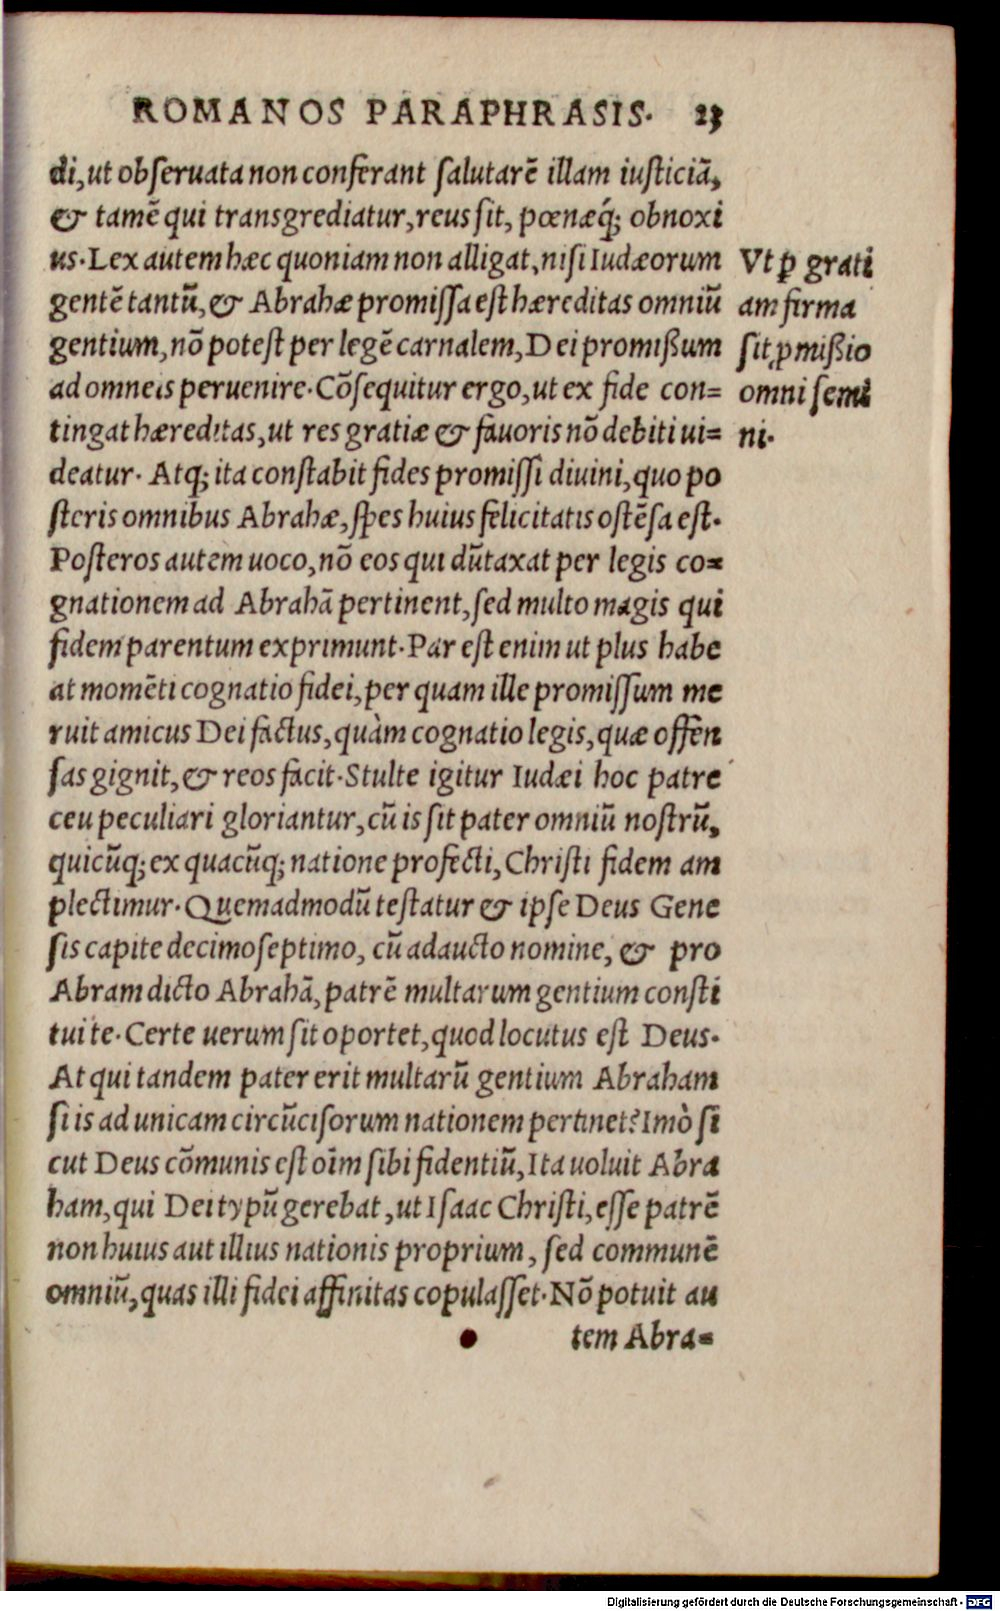 ROMANOS PARAPHRASIS. 23
di, ut obſeruata non conferant ſalutarẽ illam iuſticiã,
& tamẽ qui transgrediatur, reus ſit, pœnæq́; obnoxi
us. Lex autem hæc quoniam non alligat, niſi Iudæorum
gentẽ tantũ, & Abrahæ promiſſa eſt hæreditas omniũ
gentium, nõ poteſt per legẽ carnalem, Dei promißum
ad omneis peruenire. Cõſequitur ergo, ut ex fide con=
tingat hæreditas, ut res gratiæ & fauoris nõ debiti ui=
deatur. Atq; ita conſtabit fides promiſſi diuini, quo po
ſteris omnibus Abrahæ, ſpes huius felicitatis oſtẽſa eſt.
Poſteros autem uoco, nõ eos qui dũtaxat per legis co=
gnationem ad Abrahã pertinent, ſed multo magis qui
fidem parentum exprimunt. Par eſt enim ut plus habe
at momẽti cognatio fidei, per quam ille promiſſum me
ruit amicus Dei factus, quàm cognatio legis, quæ offen
ſas gignit, & reos facit. Stulte igitur Iudæi hoc patre
ceu peculiari gloriantur, cũ is ſit pater omniũ noſtrũ,
quicũq; ex quacũq; natione profecti, Chriſti fidem am
plectimur. Quemadmodũ teſtatur & ipſe Deus Gene
ſis capite decimoſeptimo, cũ adaucto nomine, & pro
Abram dicto Abrahã, patrẽ multarum gentium conſti
tuit te. Certe uerum ſit oportet, quod locutus eſt Deus.
At qui tandem pater erit multarũ gentium Abraham
ſi is ad unicam circũciſorum nationem pertinet? Imò ſi
cut Deus cõmunis eſt oĩm ſibi fidentiũ, Ita uoluit Abra
ham, qui Dei typũ gerebat, ut Iſaac Chriſti, eſſe patrẽ
non huius aut illius nationis proprium, ſed communẽ
omniũ, quas illi fidei affinitas copulaſſet. Nõ potuit au
tem Abra=
Vt ꝑ grati
am firma
ſit ꝓmißio
omni ſemi
ni.
Digitalisierung gefördert durch die Deutsche Forschungsgemeinschaft - DFG